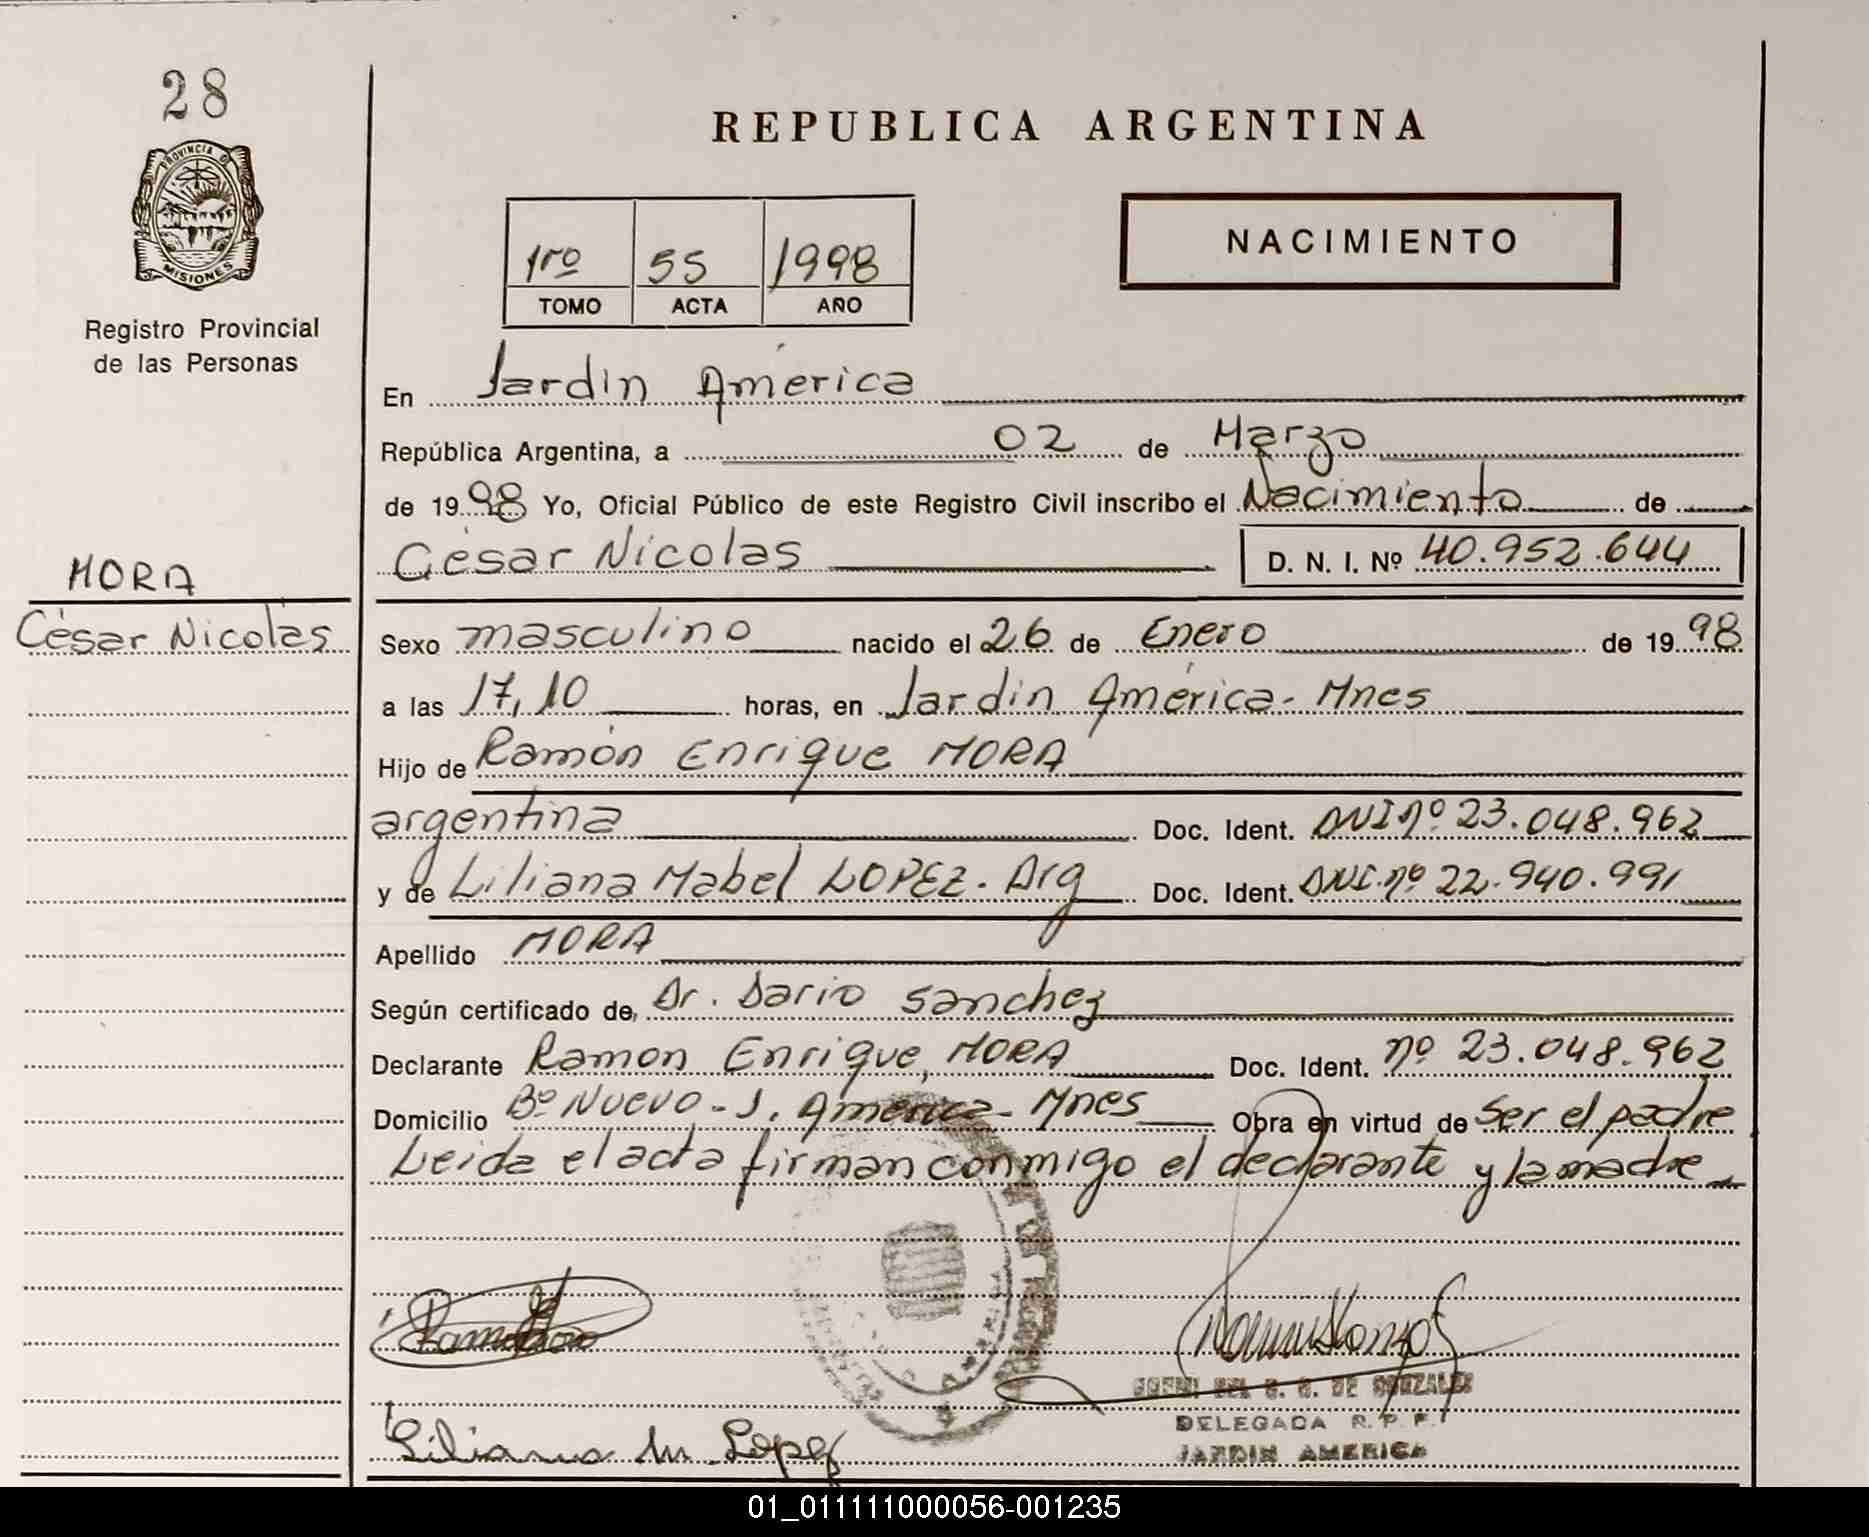 28
PROVINCIA DE
MISIONES
Registro Provincial
de las Personas
MORA
César Nicolás
REPUBLICA ARGENTINA
1ro 55 1998
TOMO ACTA AÑO
NACIMIENTO
En Jardín América
República Argentina, a 02 de Marzo
de 1998 Yo, Oficial Público de este Registro Civil inscribo el Nacimiento de
César Nicolas D. N. I. Nº 40.952.644
Sexo masculino nacido el 26 de Enero de 1998
a las 17,10 horas, en Jardín América - Mnes
Hijo de Ramón Enrique MORA
argentina Doc. Ident. DNI nº 23.048.962
y de Liliana Mabel LOPEZ. Arg Doc. Ident. DNI. nº 22.940.991
Apellido MORA
Según certificado de, Dr. Dario Sanchez
Declarante Ramon Enrique, MORA Doc. Ident. nº 23.048.962
Domicilio Bº Nuevo - J. América - Mnes Obra en virtud de Ser el padre
Leida el acta firman conmigo el declarante y la madre
Liliana M. Lopez
DE GONZALEZ
DELEGADA R. P. P.
JARDIN AMERICA
01_011111000056-001235